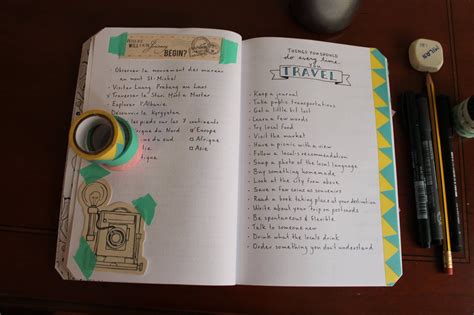 WHERE
WILL YOUR
Journey
BEGIN?
- Observer le mouvement des marées
au mont St-Michel
- Visiter Luang Prabang au Laos
- Traverser le Sham
- Explorer l'Albanie
Découvrir le Kyrgyzstan
les pieds sur les 7 continents
du Nord
Europe
Afrique
Asie
THINGS YOU SHOULD
do every time
you
TRAVEL
- Keep a journal
- Take public transportations
- Get a little bit lost
- Learn a few words
- Try local food
- Visit the market
- Have a picnic with a view
- Follow a local's recommendation
- Snap a photo of the local language
- Buy something homemade
- Look at the city from above
- Save a few coins as souvenirs
- Read a book taking place at your destination
- Write about your trip on postcards
- Be spontaneous & flexible
- Talk to someone new
- Drink what the locals drink
- Order something you don't understand
MILAN